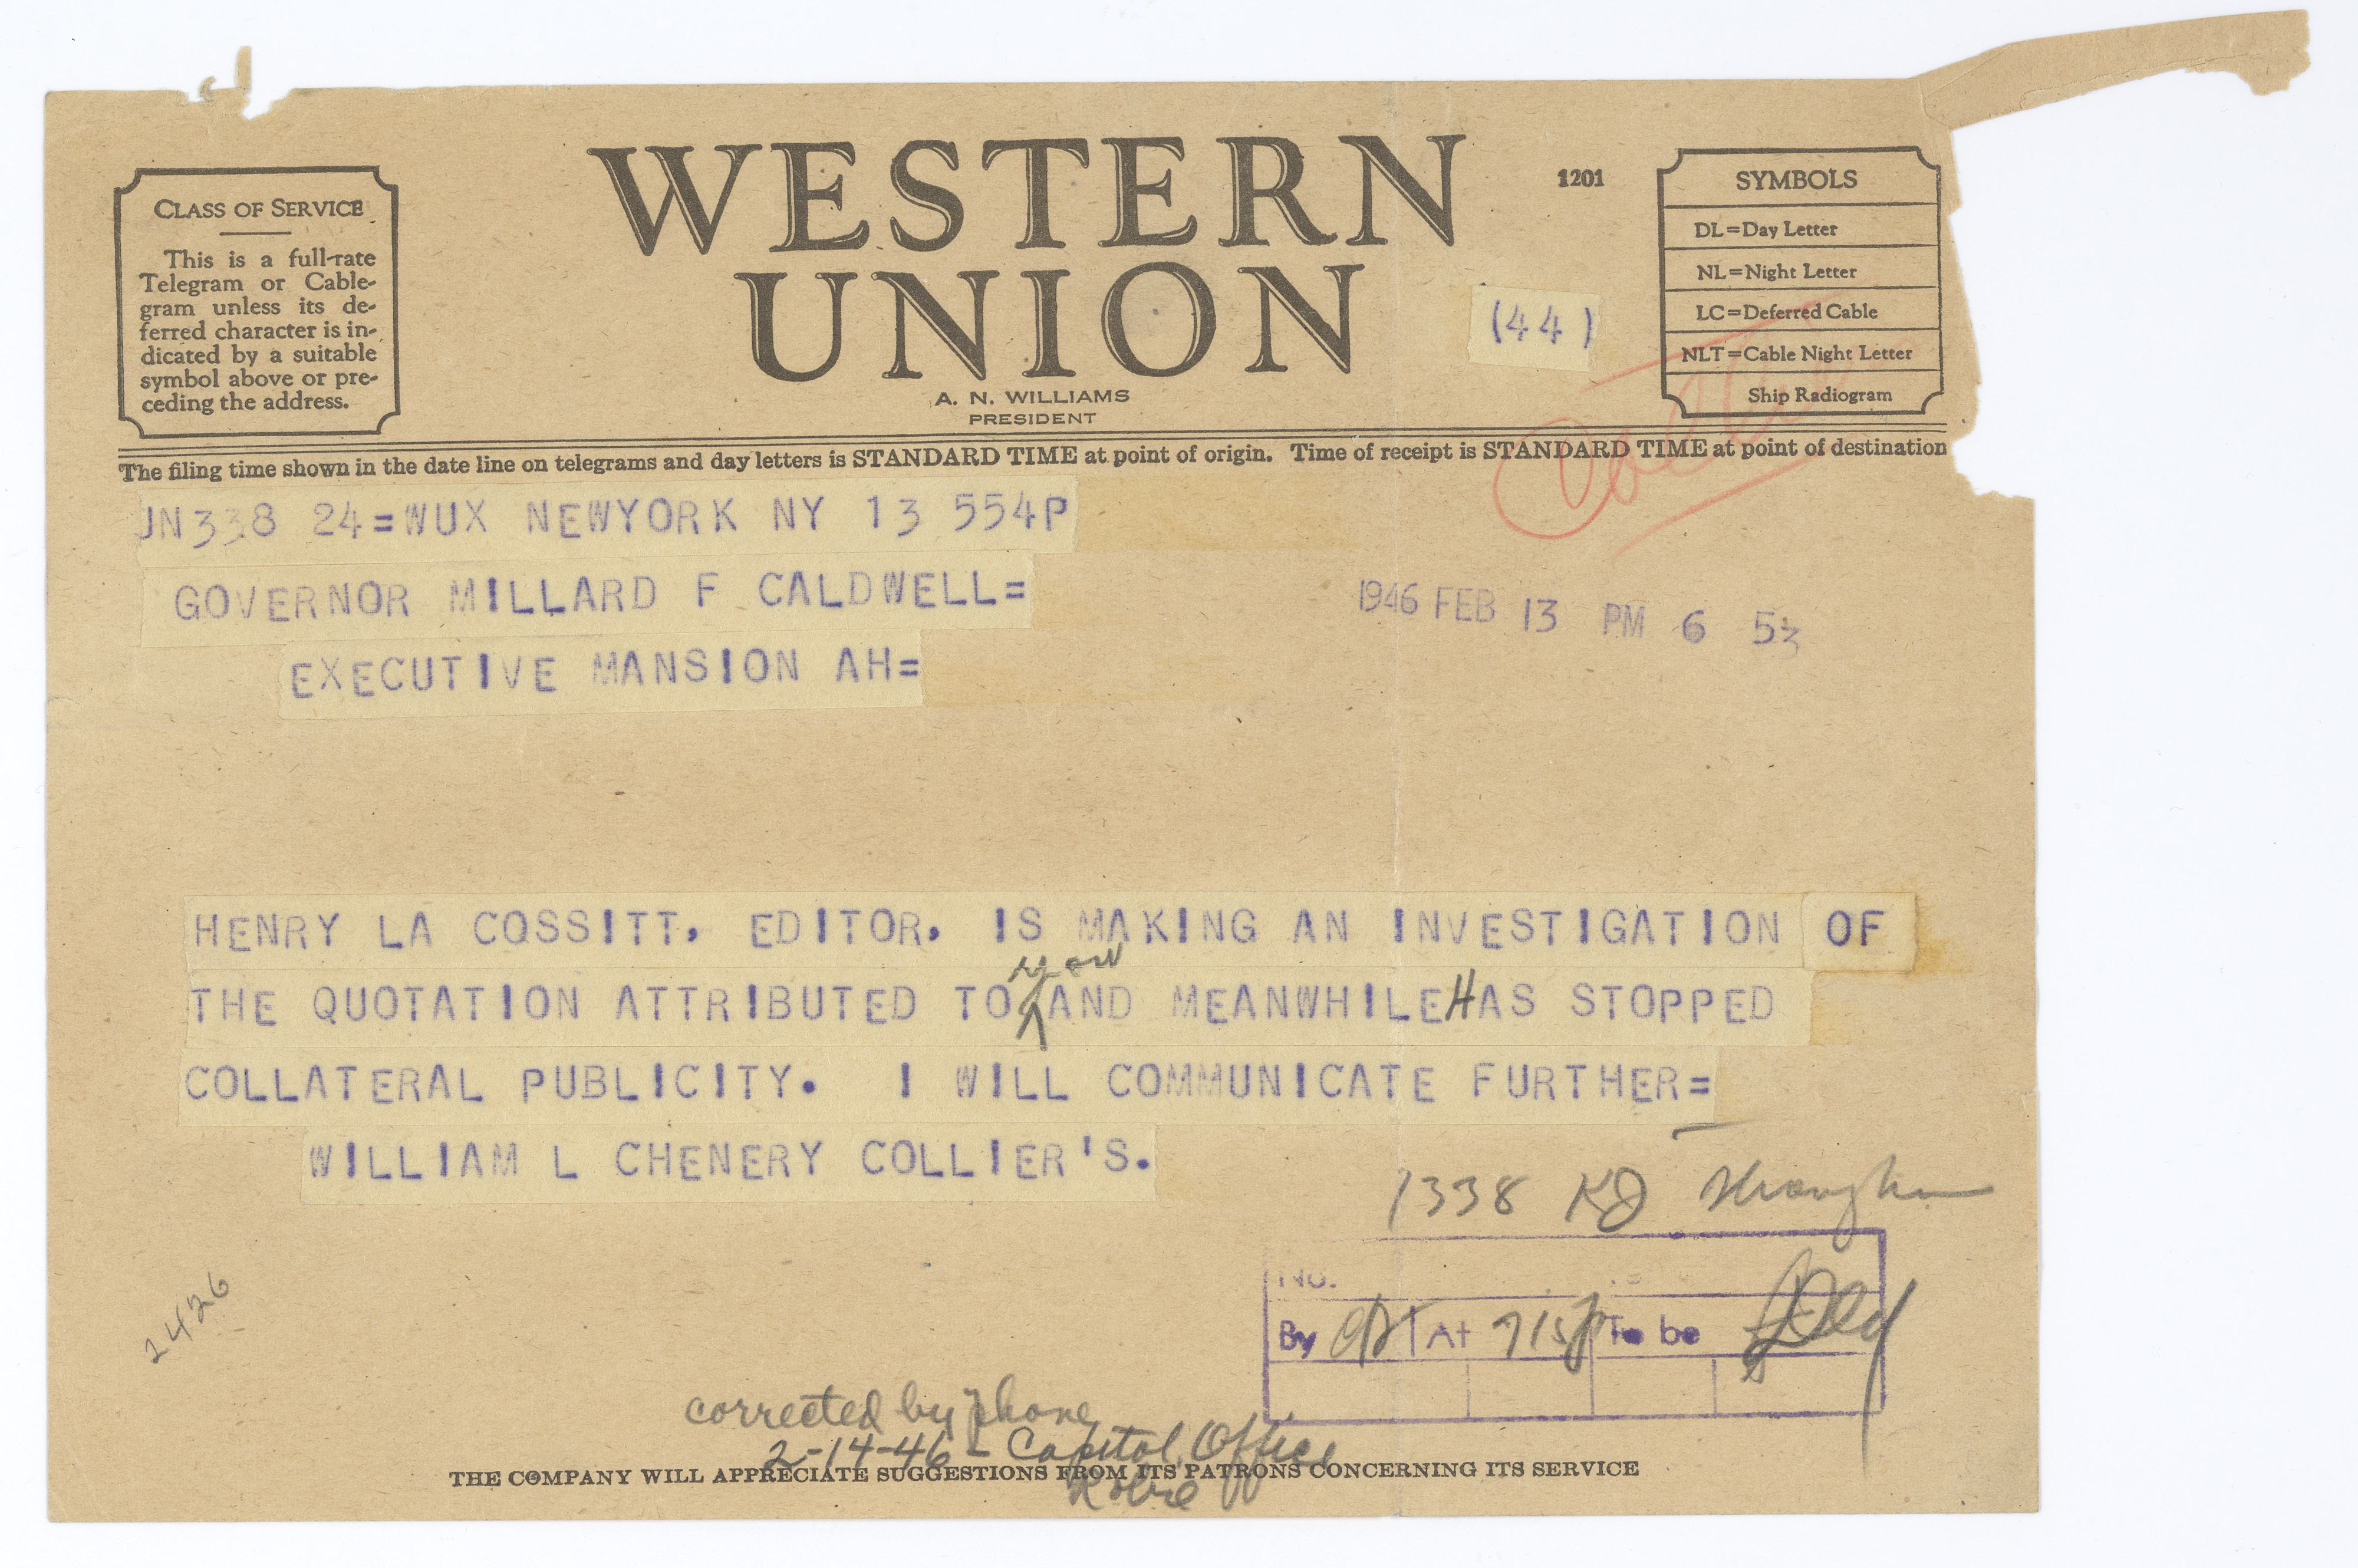 WESTERN
UNION
1201
(44)
A. N. WILLIAMS
PRESIDENT
CLASS OF SERVICE
This is a full-rate
Telegram or Cable-
gram unless its de-
ferred character is in-
dicated by a suitable
symbol above or pre-
ceding the address.
SYMBOLS
DL=Day Letter
NL=Night Letter
LC=Deferred Cable
NLT=Cable Night Letter
Ship Radiogram
The filing time shown in the date line on telegrams and day letters is STANDARD TIME at point of origin. Time of receipt is STANDARD TIME at point of destination
JN338 24=WUX NEWYORK NY 13 554P
GOVERNOR MILLARD F CALDWELL=
1946 FEB 13 PM 6 53
EXECUTIVE MANSION AH=
HENRY LA COSSITT, EDITOR, IS MAKING AN INVESTIGATION OF
THE QUOTATION ATTRIBUTED TO you AND MEANWHILE HAS STOPPED
COLLATERAL PUBLICITY. I WILL COMMUNICATE FURTHER=
WILLIAM L CHENERY COLLIER'S.
1338 KJ
No.
By At 715p To be Dld
2426
corrected by phone
2-14-46 - Capitol Office
THE COMPANY WILL APPRECIATE SUGGESTIONS FROM ITS PATRONS CONCERNING ITS SERVICE